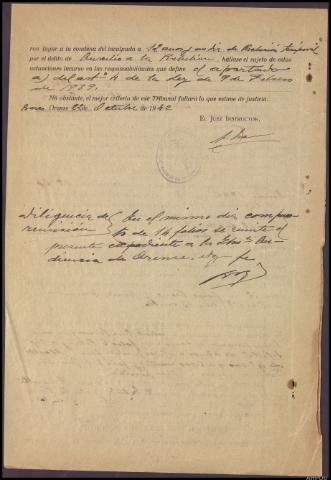 ron lugar a la condena del inculpado a 12 años y un dia de Reclusión Temporal
por el delito de Auxilio a la Rebelión, hállase el sujeto de estas
actuaciones incurso en las responsabilidades que define el apartado
a) del artº 4 de la Ley de 9 de Febrero
de 1939.
No obstante, el mejor criterio de ese Tribunal fallará lo que estime de justicia.
Orense Octubre de 1942
EL JUEZ INSTRUCTOR,
Diligencia de En el mismo dia compues
remisión to de 14 folios se remite el
presente expediente a la Ilmª Au-
diencia de Orense, doy fe